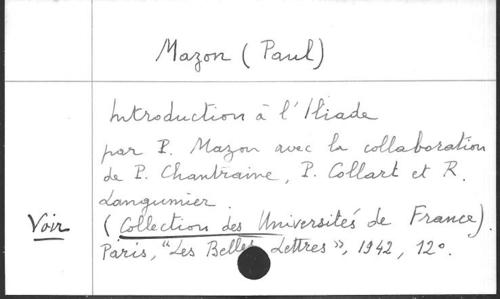 Mazon (Paul)
Introduction à l'Iliade
par P. Mazon avec la collaboration
de P. Chantraine, P. Collart et R.
Langumier.
Voir (Collection des Universités de France).
Paris, "Les Belles Lettres", 1942, 12°.